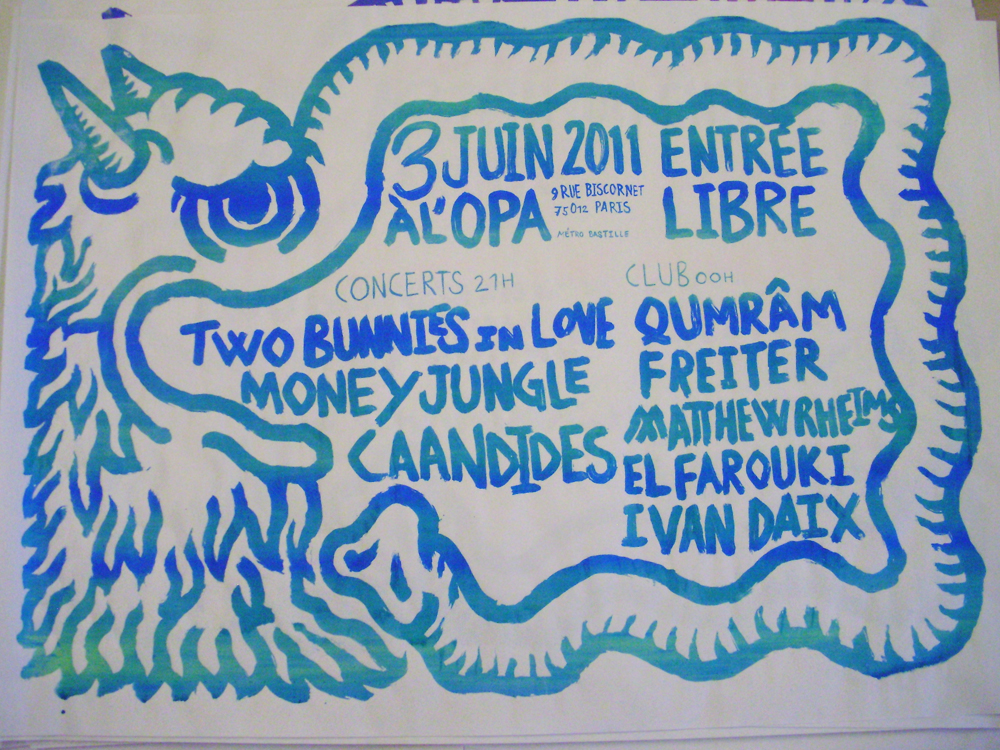 3 JUIN 2011
À L'OPA
9 RUE BISCORNET
75012 PARIS
MÉTRO BASTILLE
ENTRÉE
LIBRE
CONCERTS 21H
TWO BUNNIES IN LOVE
MONEY JUNGLE
CAANDIDES
CLUB 00H
QUMRÂM
FREITER
MATTHEW RHEIMS
EL FAROUKI
IVAN DAIX